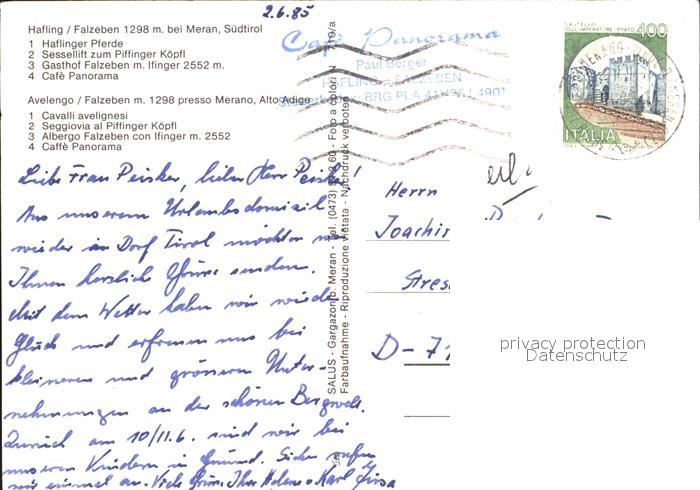 2.6.85
Hafling / Falzeben 1298 m. bei Meran, Südtirol
1 Haflinger Pferde
2 Sessellift zum Piffinger Köpfl
3 Gasthof Falzeben m. Ifinger 2552 m.
4 Cafè Panorama
Avelengo / Falzeben m. 1298 presso Merano, Alto Adige
1 Cavalli avelignesi
2 Seggiovia al Piffinger Köpfl
3 Albergo Falzeben con Ifinger m. 2552
4 Caffè Panorama
Cafè Panorama
Paul Berger
HAFLING - FALZEBEN
400
ITALIA
Liebe Frau Peisker, lieber Herr Peisker!
Aus unserem Urlaubsdomizil
wieder in Dorf Tirol möchten wir
Ihnen herzliche Grüsse senden.
Mit dem Wetter haben wir wieder
Glück und erfreuen uns bei
kleineren und grösseren Unter-
nehmungen an der schönen Bergwelt.
Zurück am 10/11.6. sind wir bei
unseren Kindern in Gmünd. Sicher rufen
wir einmal an. Viele Grüsse Ihre Helene + Karl
SALUS - Gargazon b. Meran - Tel. (0473) - Foto a colori
Farbaufnahme - Riproduzione vietata - Nachdruck verboten
Herrn
Joachim
Stres
D-71
privacy protection
Datenschutz